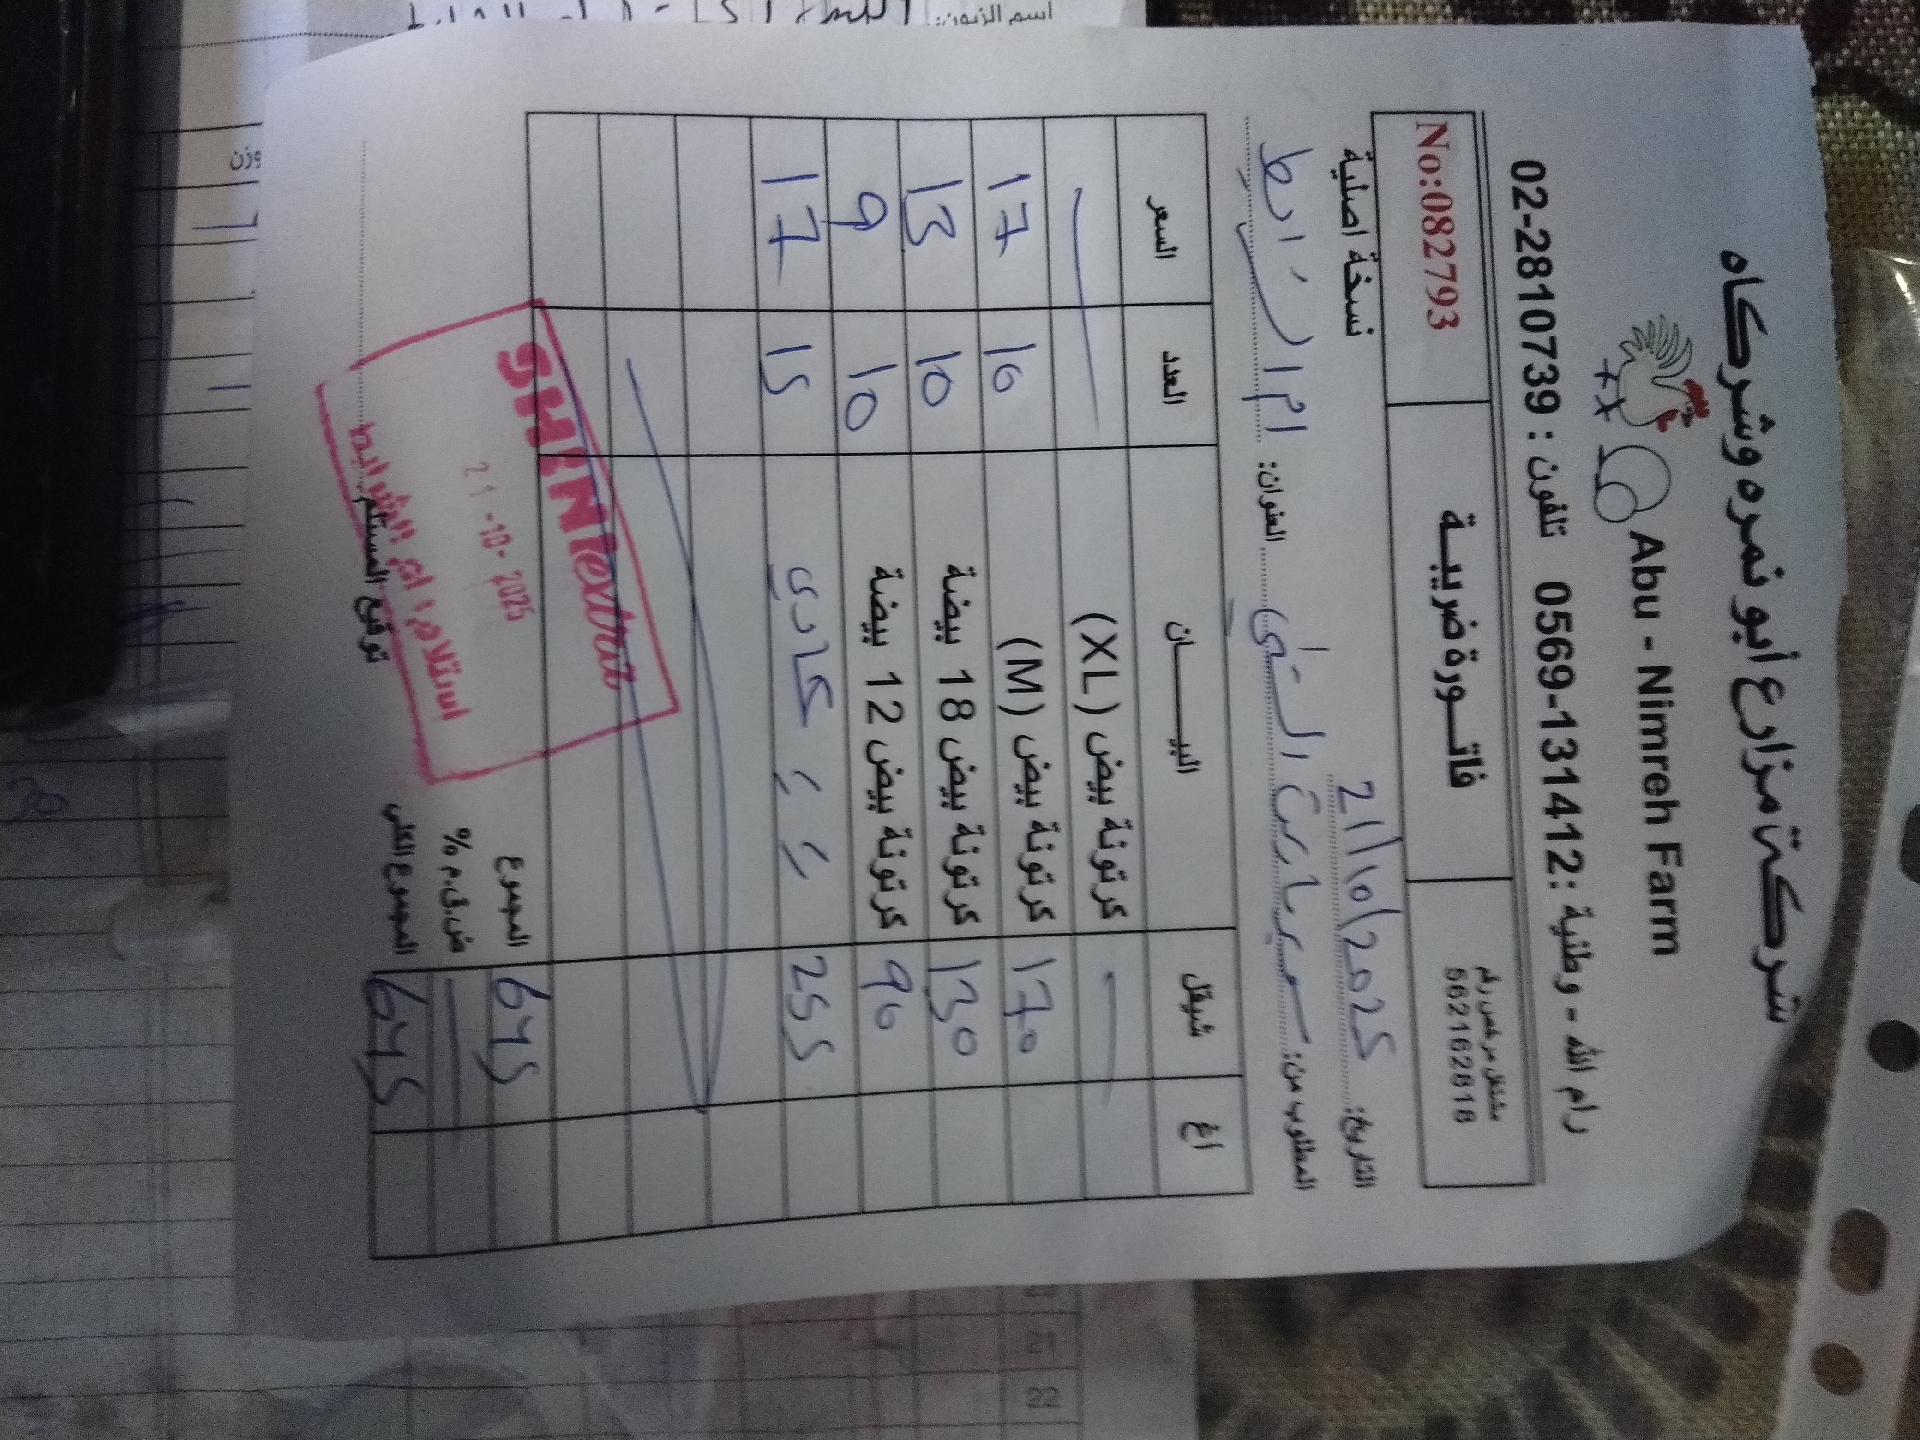 شركة مزارع أبو نمره وشركاه
Abu - Nimreh Farm
رام الله - وطنية : 0569-131412 تلفون : 02-2810739
مشتغل مرخص رقم
562162818
فاتــورة ضريبيــة
No:082793
نسخة اصلية
التاريخ: 21/10/2025
المطلوب من: العنوان: ام الشرايط
اغ شيقل البيـــــان العدد السعر
كرتونة بيض (XL)
170 كرتونة بيض (M) 10 17
130 كرتونة بيض 18 بيضة 10 13
90 كرتونة بيض 12 بيضة 10 9
255 " " عادي 15 17
SHINI extra
21-10-2025
استلام: ام الشرايط
المجموع 645
ض.ق.م %
المجموع الكلي 645
توقيع المستلم
اسم الزبون:
وزن
21
22